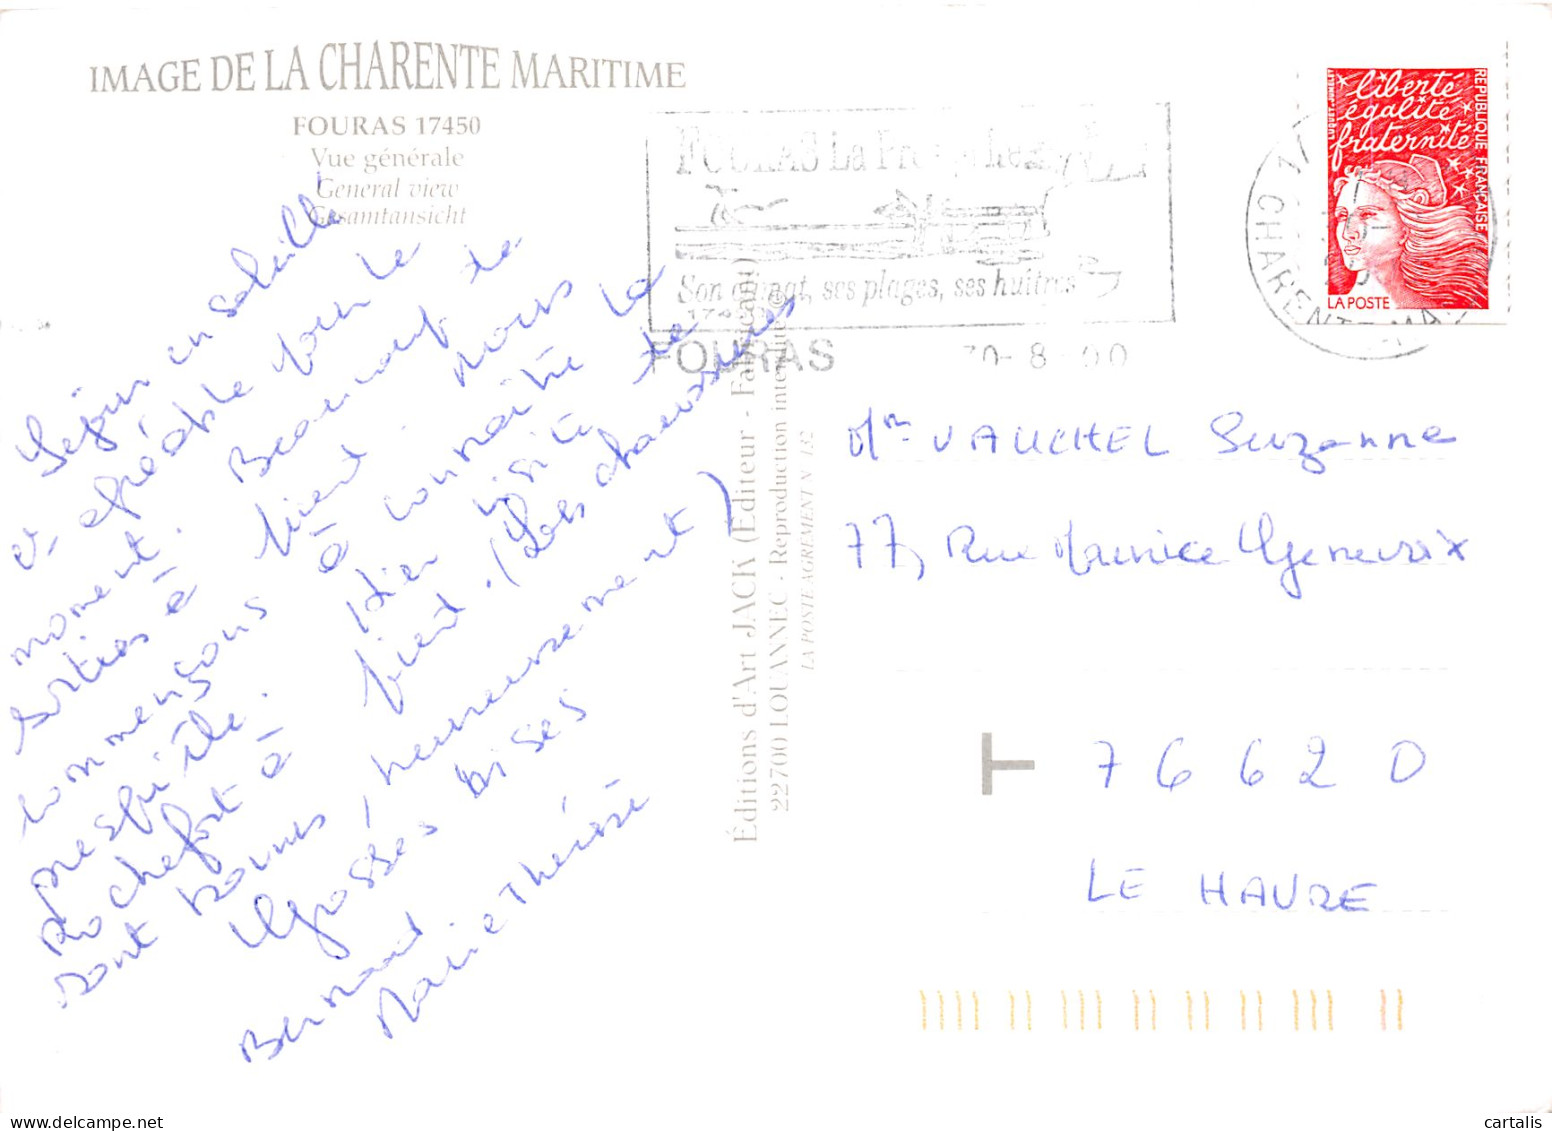 IMAGE DE LA CHARENTE MARITIME
FOURAS 17450
Vue générale
General view
Gesamtansicht
Séjour ensoleillé
et agréable pour le
moment. Beaucoup de
sorties à pied. Nous
commençons à connaître la
presqu'île. Hier visite de
Rochefort à pied. (Les chaussures
sont bonnes, heureusement)
Grosses bises
Bernard
Marie Thérèse
Éditions d'Art JACK (Editeur - Fabricant)
22700 LOUANNEC - Reproduction interdite ©
LA POSTE AGREMENT N° 132
FOURAS La
Son climat, ses plages, ses huîtres
FOURAS
30-8 00
CHARENTE MA
liberté
égalité
fraternité
RÉPUBLIQUE FRANÇAISE
LA POSTE
Mme VAUCHEL Suzanne
77, Rue Maurice Genevoix
T 76620
LE HAVRE
cartalis